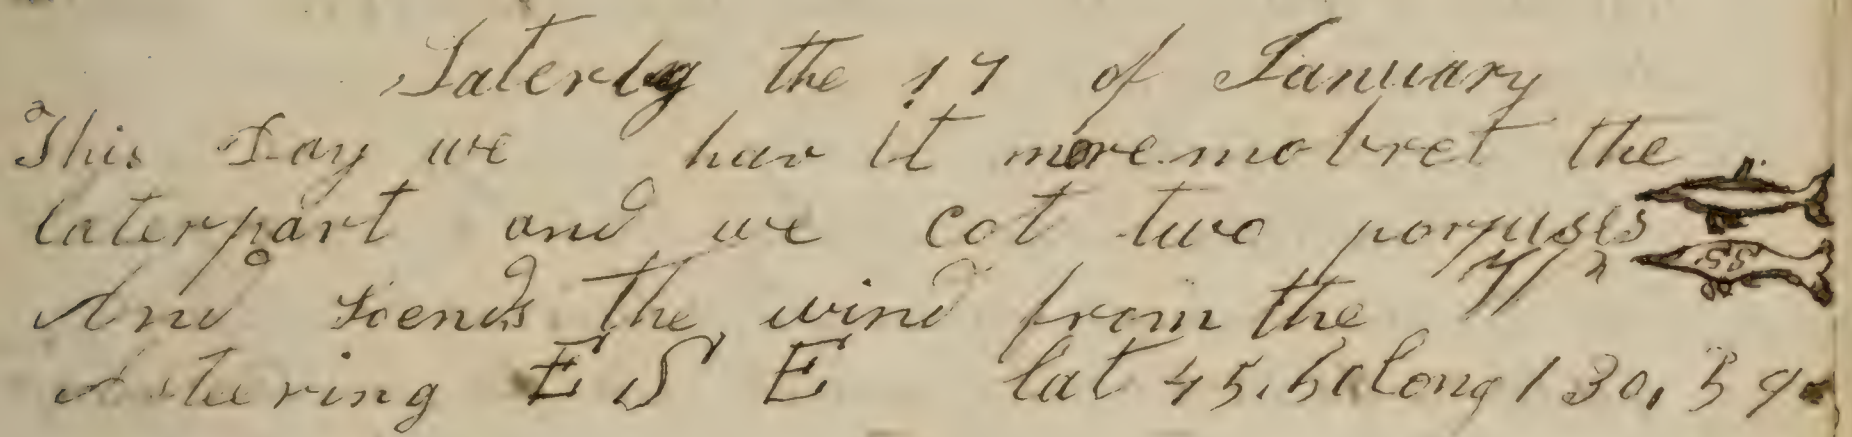 Saterdy the 17 of January
This Day we hav it more mobret the
laterpart and we cot two porpuses
And soends the wind from the
A stering E S E lat 45, long 130,